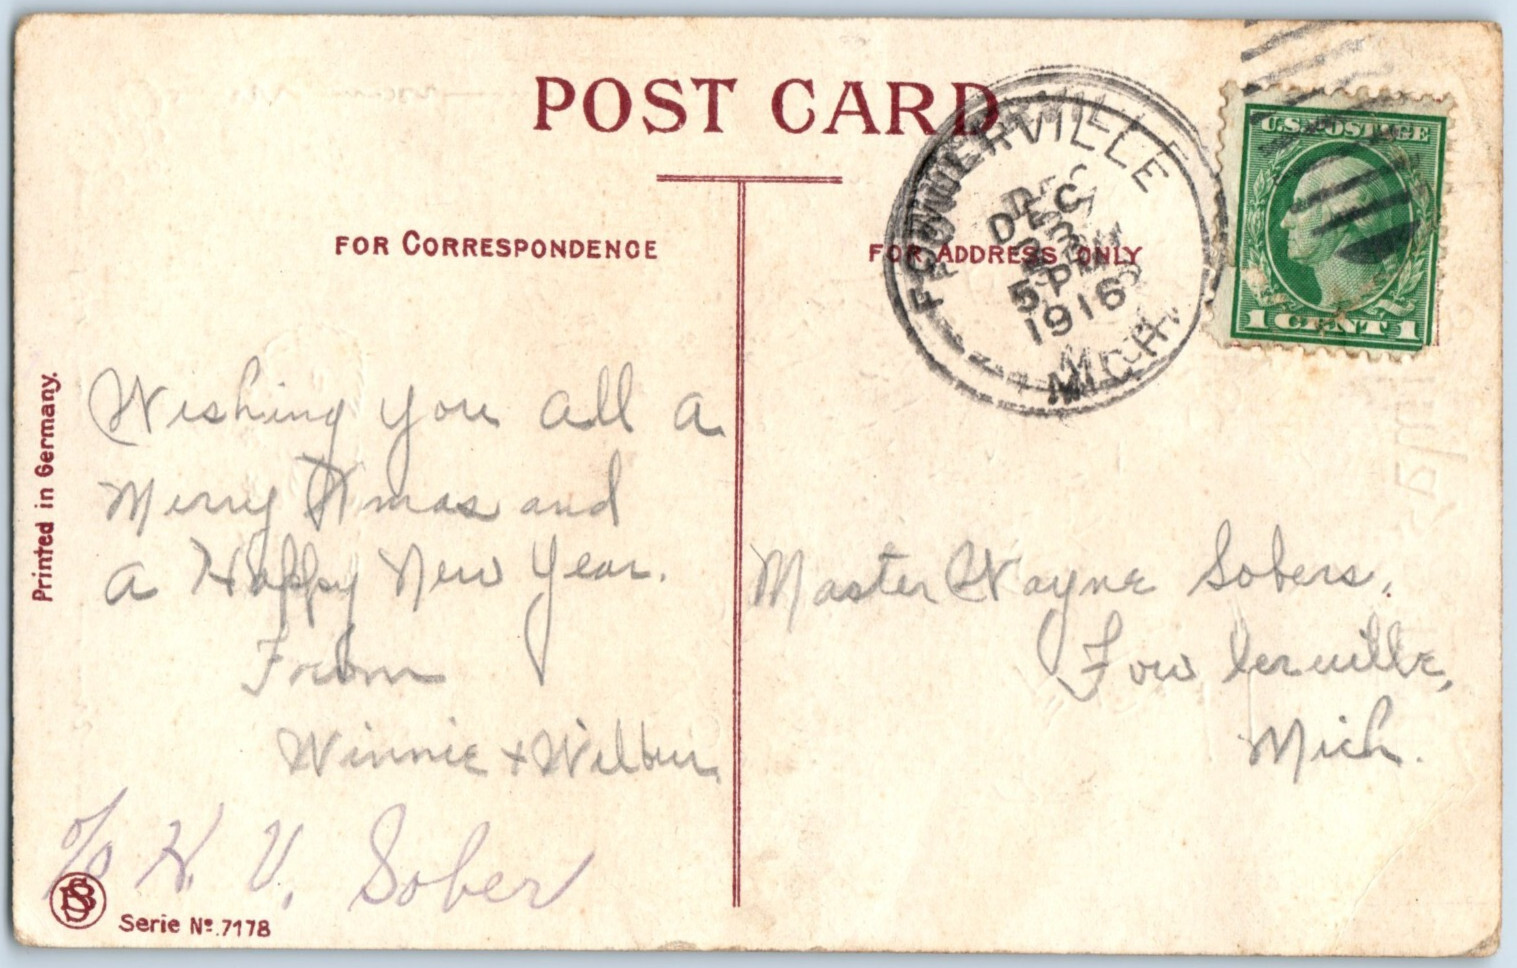 POST CARD
FOR CORRESPONDENCE
FOR ADDRESS ONLY
FOWLERVILLE
DEC
5 PM
1916
MICH.
U.S. POSTAGE
1 CENT 1
Wishing you all a
Merry Xmas and
a Happy New Year.
From
Winnie + Wilbur
c/o H. V. Sober
Master Wayne Sobers,
Fowlerville,
Mich.
Printed in Germany.
Serie No. 7178